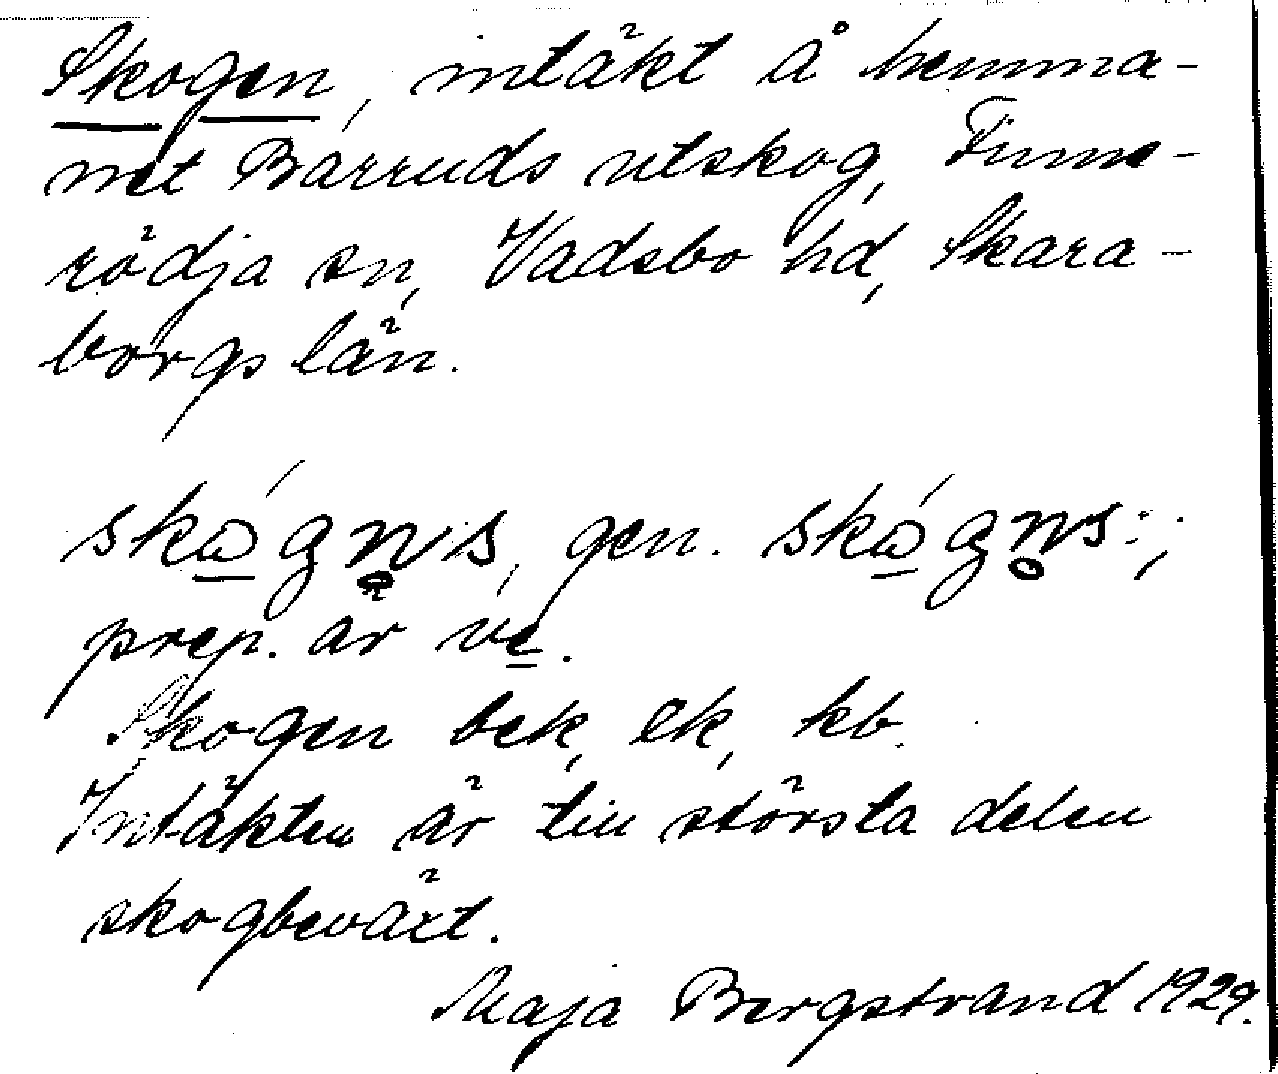 Skogen, intäkt å hemma-
net Barruds utskog, Fine-
rödja sn, Vadsbo hd, Skara-
borgs län.
prep. är ve.
Skogen bek, ek, kb.
Intäkten är till största delen
skogbeväxt.
Maja Bergstrand 1929.